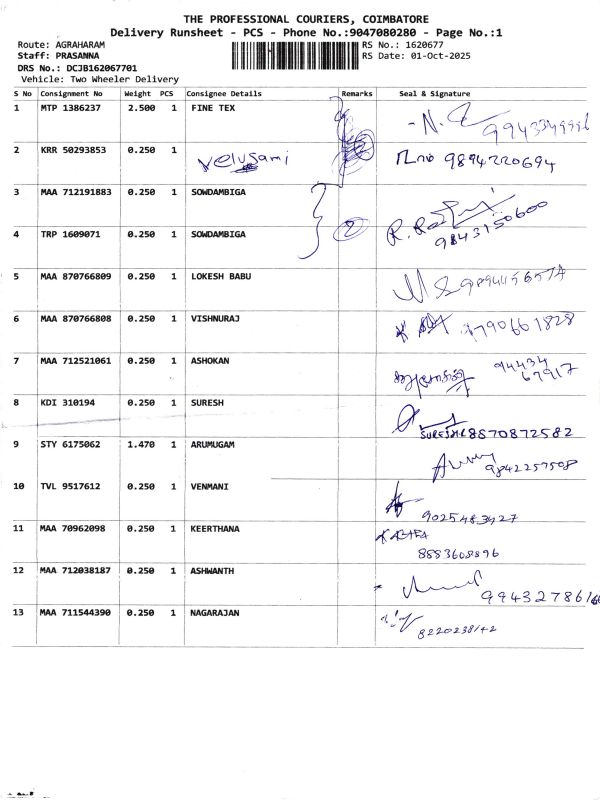 THE PROFESSIONAL COURIERS, COIMBATORE
Delivery Runsheet - PCS - Phone No.:9047080280 - Page No.:1
Route: AGRAHARAM RS No.: 1620677
Staff: PRASANNA RS Date: 01-Oct-2025
DRS No.: DCJB162067701
Vehicle: Two Wheeler Delivery
S No Consignment No Weight PCS Consignee Details Remarks Seal & Signature
1 MTP 1386237 2.500 1 FINE TEX
2 KRR 50293853 0.250 1 Velusami 9894220694
3 MAA 712191883 0.250 1 SOWDAMBIGA
9843150600
4 TRP 1609071 0.250 1 SOWDAMBIGA 2
5 MAA 870766809 0.250 1 LOKESH BABU
6 MAA 870766808 0.250 1 VISHNURAJ 9790661828
7 MAA 712521061 0.250 1 ASHOKAN 94434
67917
8 KDI 310194 0.250 1 SURESH
8870872582
9 STY 6175062 1.470 1 ARUMUGAM
9842257508
10 TVL 9517612 0.250 1 VENMANI
9025483427
11 MAA 70962098 0.250 1 KEERTHANA
8883608896
12 MAA 712038187 0.250 1 ASHWANTH
13 MAA 711544390 0.250 1 NAGARAJAN
8220238142